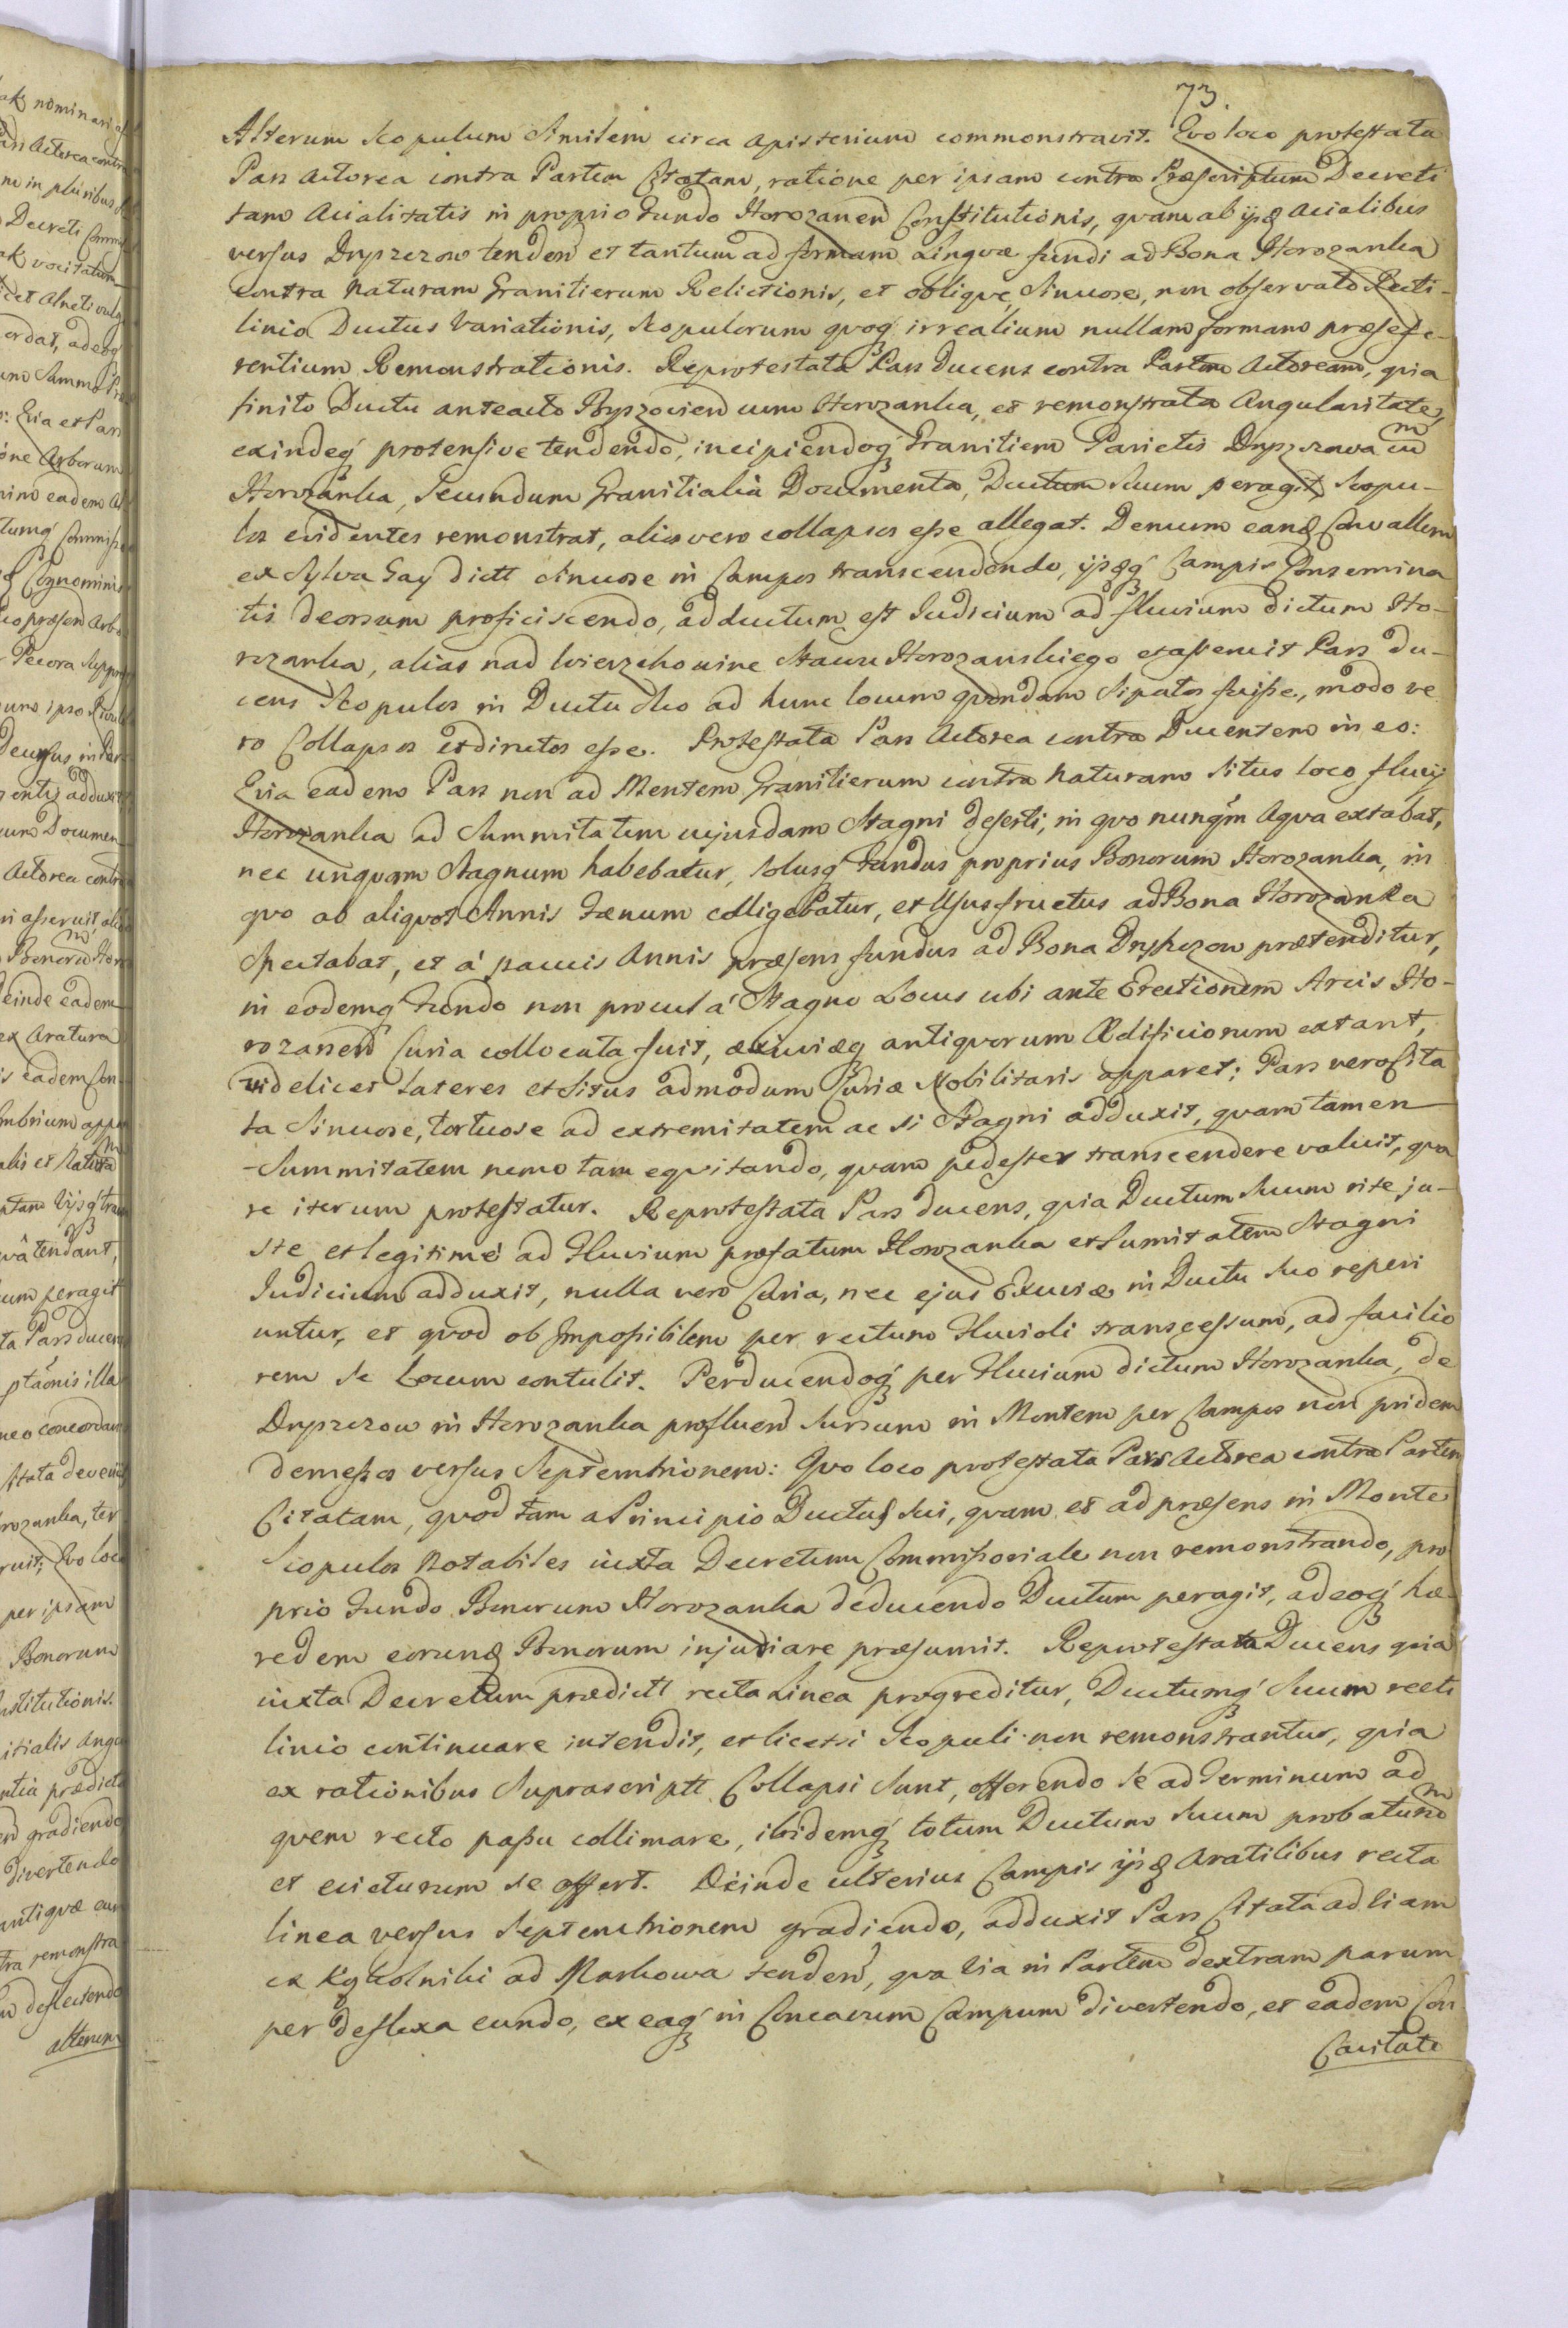 73.
Alterum Scopulum Similem circa apisterium commonstravit. Quo loco protestata
Pars Actorea contra Partem Citatam, ratione per ipsam contra Præscriptum Decreti
tam Acialitatis in proprio Fundo Horozanen Constitutionis, quam ab ijsd Acialibus
versus Dryszczow tenden et tantum ad formam Linguæ fundi ad Bona Horozanka
contra Naturam Granitierum Relictionis, et oblique, Sinuose, non observato Recti-
linio Ductus Variationis, Scopulorum quoq irrealium nullam formam præsefe-
rentium Remonstrationis. Reprotestata Pars Ducens contra Partem Actoream, quia
finito Ductu anteacto Byszovien cum Horozanka, et remonstrata Angularitate,
exindeq protensive tendendo, incipiendoq Granitiem Parietis Dryszczowa cum
Horozanka, Secundum Granitialia Documenta, Ductum Suum peragit, Scopu-
los evidentes remonstrat, alios vero collapsos esse allegat. Demum eand Convallem
ex Sylva Gay dictt Sinuose in Campos transcendendo, ijsdq Campis Consemina
tis deorsum proficiscendo, adductum est Iudicium ad fluvium dictum Ho-
rozanka, alias nad Wierzchowine Stawu Horozanskiego et asseruit Pars Du-
cens Scopulos in Ductu Suo ad hunc locum quondam Sipatos fuisse, modo ve
ro Collapsos et dirutos esse. Protestata Pars Actorea contra Ducentem in eo:
Quia eadem Pars non ad Mentem Granitierum contra Naturam Situs loco fluvij
Horozanka ad Summitatem cujusdam Stagni deserti, in quo nunqm Aqua extabat,
nec unquam Stagnum habebatur, Solusq Fundus proprius Bonorum Horozanka, in
quo ab aliquot Annis Fænum colligebatur, et Ususfructus ad Bona Horozanka
Spectabat, et á paucis Annis præsens fundus ad Bona Dryszczow prætenditur,
in eodemq Fundo non procul á Stagno Locus ubi ante Erectionem Arcis Ho-
rozanen Curia collocata fuit, exuviæq antiquorum Ædificiorum extant,
videlicet Lateres et Situs admodum Curiæ Nobilitaris apparet; Pars vero Cita
ta Sinuose, tortuose ad extremitatem ac si Stagni adduxit, quam tamen
Summitatem nemo tam equitando, quam pedester transcendere valuit, qua
re iterum protestatur. Reprotestata Pars ducens, quia Ductum Suum rite ju-
ste et legitimé ad Fluvium præfatum Horozanka et Sumitatem Stagni
Iudicium adduxit, nulla vero Curia, nec ejus Exuviæ in Ductu Suo reperi
untur, et quod ob Impossibilem per rectum Fluvioli transcessum, ad facilio
rem Se Locum contulit. Perducendoq per Fluvium dictum Horozanka, de
Dryszczow in Horozanka profluen Sursum in Montem per Campos non pridem
demessos versus Septemtrionem: Quo loco protestata Pars Actorea contra Partem
Citatam, quod tam a Principio Ductus Sui, quam et ad præsens in Monte
Scopulos Notabiles iuxta Decretum Commissoriale non remonstrando, pro
prio Fundo Bonorum Horozanka deducendo Ductum peragit, adeoq hæ-
redem eorund Bonorum injuriare præsumit. Reprotestata Ducens quia
iuxta Decretum prædictt recta Linea progreditur, Ductumq Suum recti
linio continuare intendit, et licetsi Scopuli non remonstrantur, quia
ex rationibus Suprascriptt Collapsi Sunt, offerendo Se ad Terminum ad
quem recto passu collimare, ibidemq totum Ductum Suum probaturum
et evicturum se offert. Deinde ulterius Campis ijsd Aratilibus recta
linea versus Septemtrionem gradiendo, adduxit Pars Citata ad Viam
ex Zyholniki ad Markowa tenden, qua Via in Partem dextram parum
per deflexa eundo, ex eaq in Concavum Campum divertendo, et eadem Con
Cavitate